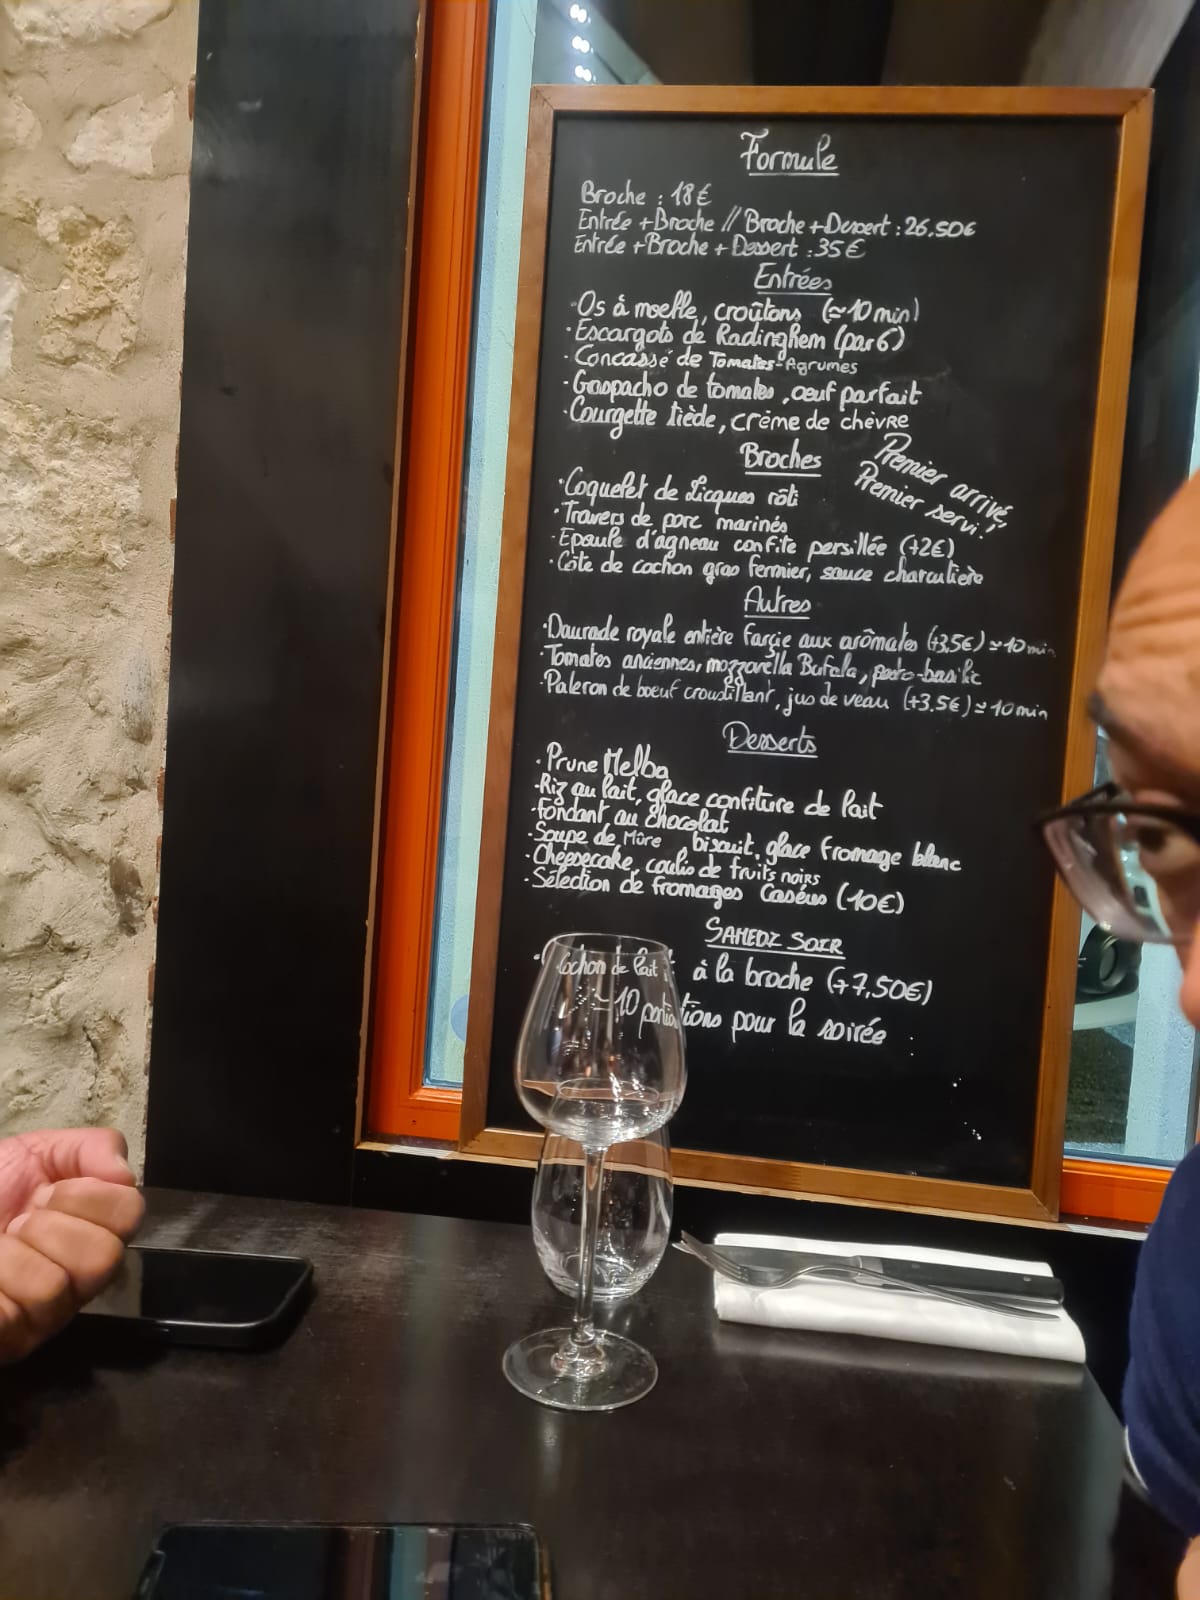 Formule
Broche : 18€
Entrée + Broche // Broche + Dessert : 26.50€
Entrée + Broche + Dessert : 35€
Entrées
· Os à moelle, croûtons (≃10 min)
· Escargots de Radinghem (par 6)
· Concassé de Tomates-Agrumes
· Gaspacho de tomates, oeuf parfait
· Courgette tiède, crème de chèvre
Broches
Premier arrivé,
Premier servi !
· Coquelet de Licques rôti
· Travers de porc marinés
· Epaule d'agneau confite persillée (+2€)
· Côte de cochon gras fermier, sauce charcutière
Autres
· Daurade royale entière farçie aux arômates (+3,5€) ≃10 min
· Tomates anciennes, mozzarella Bufala, pesto-basilic
· Paleron de boeuf croustillant, jus de veau (+3.5€) ≃10 min
Desserts
· Prune Melba
· Riz au lait, glace confiture de lait
· Fondant au chocolat
· Soupe de Mûre biscuit, glace fromage blanc
· Cheesecake, coulis de fruits noirs
· Sélection de fromages Caséus (10€)
SAMEDI SOIR
· Cochon de lait à la broche (+7,50€)
≃10 portions pour la soirée